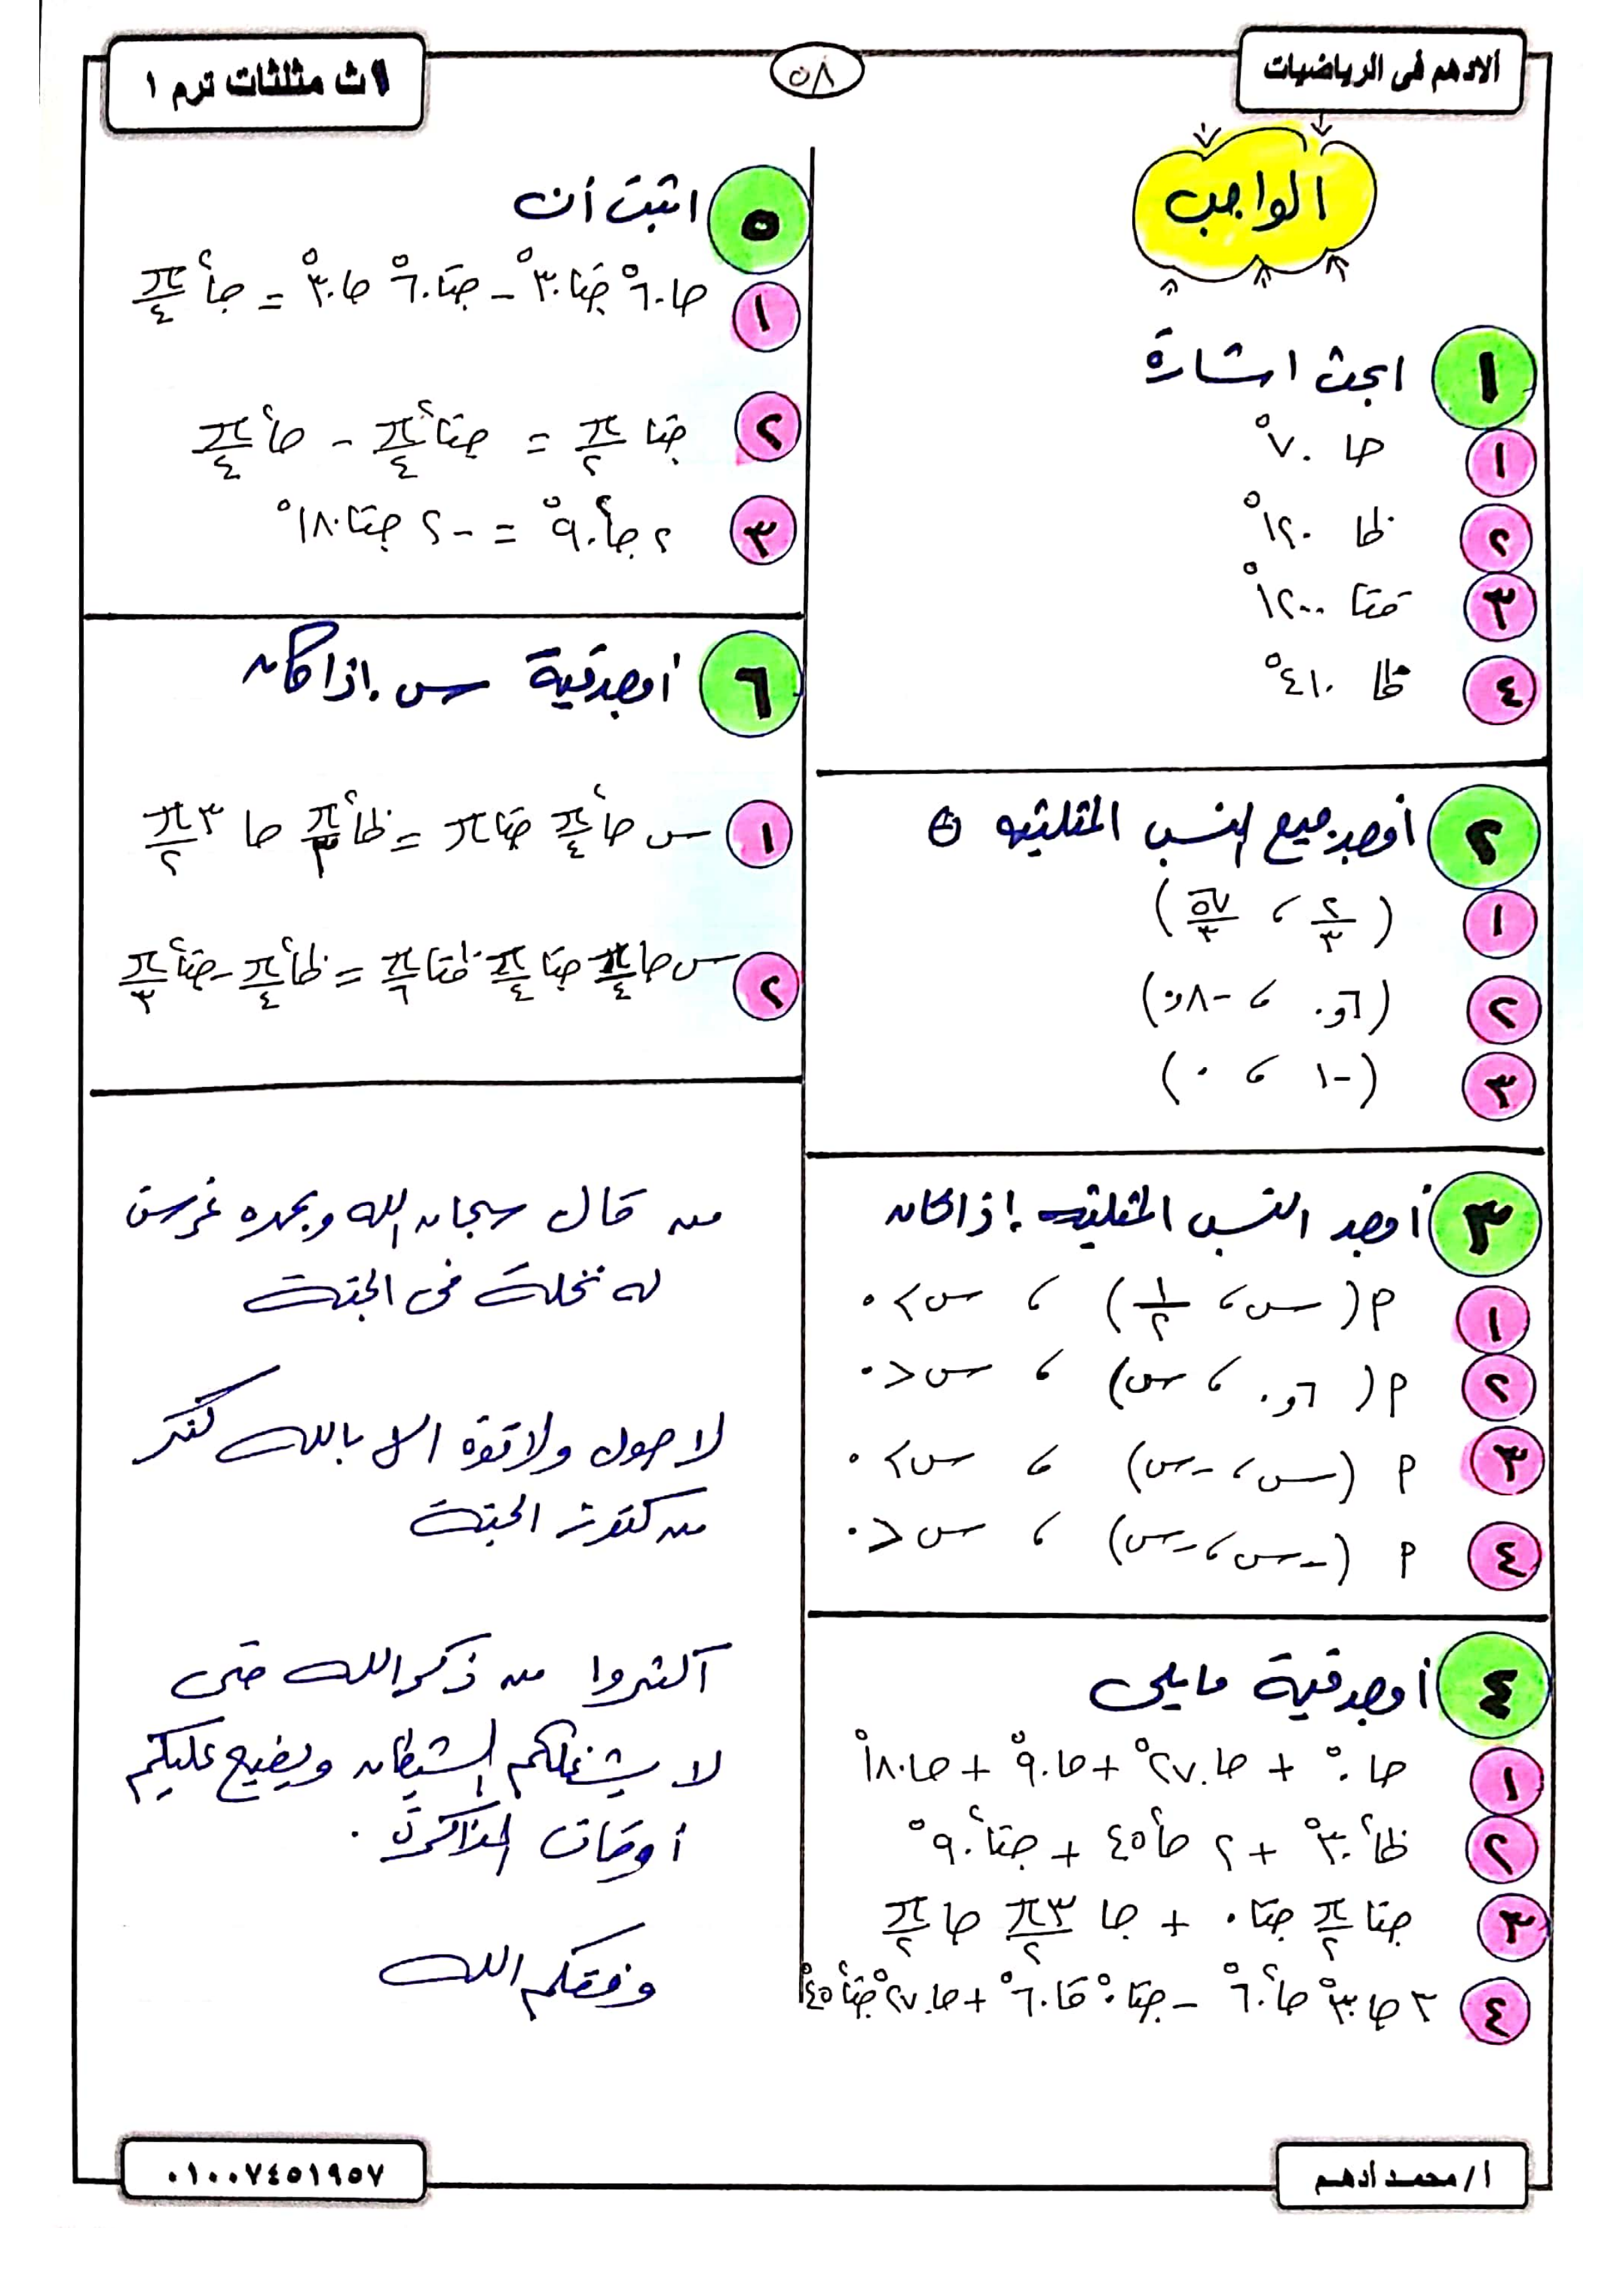 الادهم فى الرياضيات
٥٨
١ث مثلثات ترم ١
الواجب
١ ابحث اشارة
١ حا ٧٠°
٢ ظا ١٢٠°
٣ قتا ١٢٠٠°
٤ ظا ٤١٠°
٢ أوجد جميع النسب المثلثيه
١ (٢/٣ ، √٥/٣)
٢ (٦و٠ ، -٨و٠)
٣ (-١ ، ٠)
٣ أوجد النسب المثلثيه إذا كان
١ م (س ، ١/٢) ، س > ٠
٢ م (٦و٠ ، س) ، س < ٠
٣ م (س ، -س) ، س > ٠
٤ م (-س ، -س) ، س < ٠
٤ أوجد قيمة مايلى
١ حا ٠° + حا ٢٧٠° + حا ٩٠° + حا ١٨٠°
٢ ظا² ٣٠° + ٢ حا² ٤٥ + جتا² ٩٠°
٣ جتا π/٢ جتا ٠ + حا ٣π/٢ حا π/٢
٤ ٣ حا ٣٠° حا² ٦٠° - جتا ٠° قا ٦٠° + حا ٢٧٠° جتا² ٤٥°
٥ اثبت أن
١ حا ٦٠° جتا ٣٠° - جتا ٦٠° حا ٣٠° = حا² π/٤
٢ جتا π/٢ = جتا² π/٤ - حا² π/٤
٣ ٢ حا² ٩٠° = -٢ جتا ١٨٠°
٦ أوجد قيمة س إذا كان
١ س حا² π/٤ جتا π = ظا² π/٣ حا ٣π/٢
٢ س حا π/٤ جتا π/٤ ظتا π/٦ = ظا² π/٤ - جتا² π/٣
من قال سبحان الله وبحمده غرست
له نخلة فى الجنة
لا حول ولا قوة الا بالله كنز
من كنوز الجنة
اكثروا من ذكر الله حتى
لا يشغلكم الشيطان ويضيع عليكم
أوقات المذاكرة .
وفقكم الله
أ/ محمد أدهم
٠١٠٠٧٤٥١٩٥٧